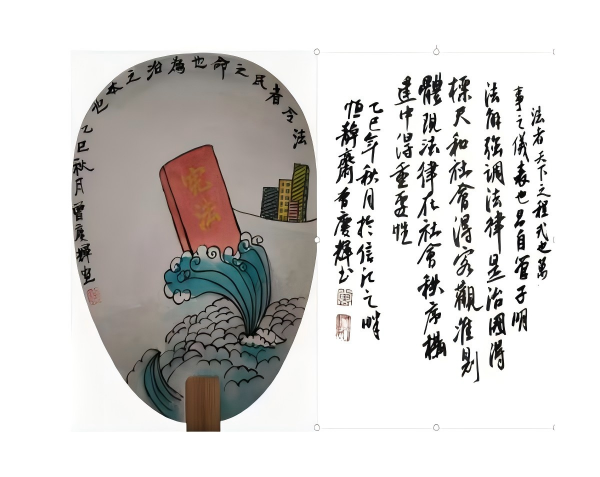 法令者民之命也為治之本也
乙巳秋月曾慶輝畫
宪法
法者天下之程式也萬
事之儀表也自管子明
法解強調法律是治國得
標尺和社會得客觀準則
體現法律在社會秩序構
建中得重要性
乙巳年秋月於信江之畔
恒靜齋曾慶輝書